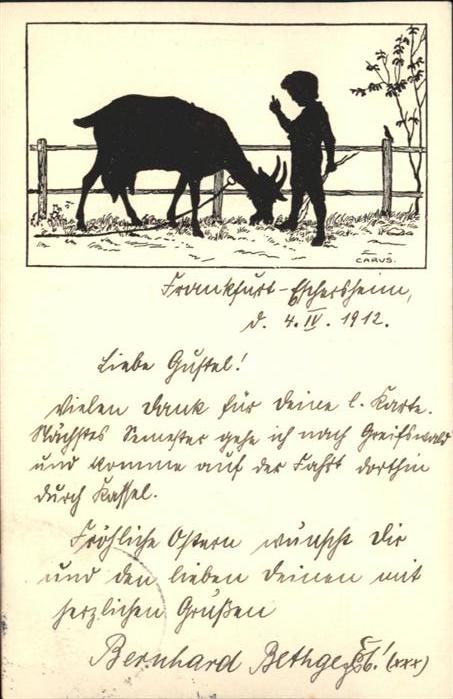 CARUS.
Frankfurt-Eschersheim,
d. 4. IV. 1912.
Liebe Gustel!
Vielen Dank für Deine l. Karte.
Nächstes Semester gehe ich nach Greifswald
und komme auf der Fahrt dorthin
durch Kassel.
Fröhliche Ostern wünscht Dir
und den lieben Deinen mit
herzlichen Grüßen
Bernhard Bethge (xxx)